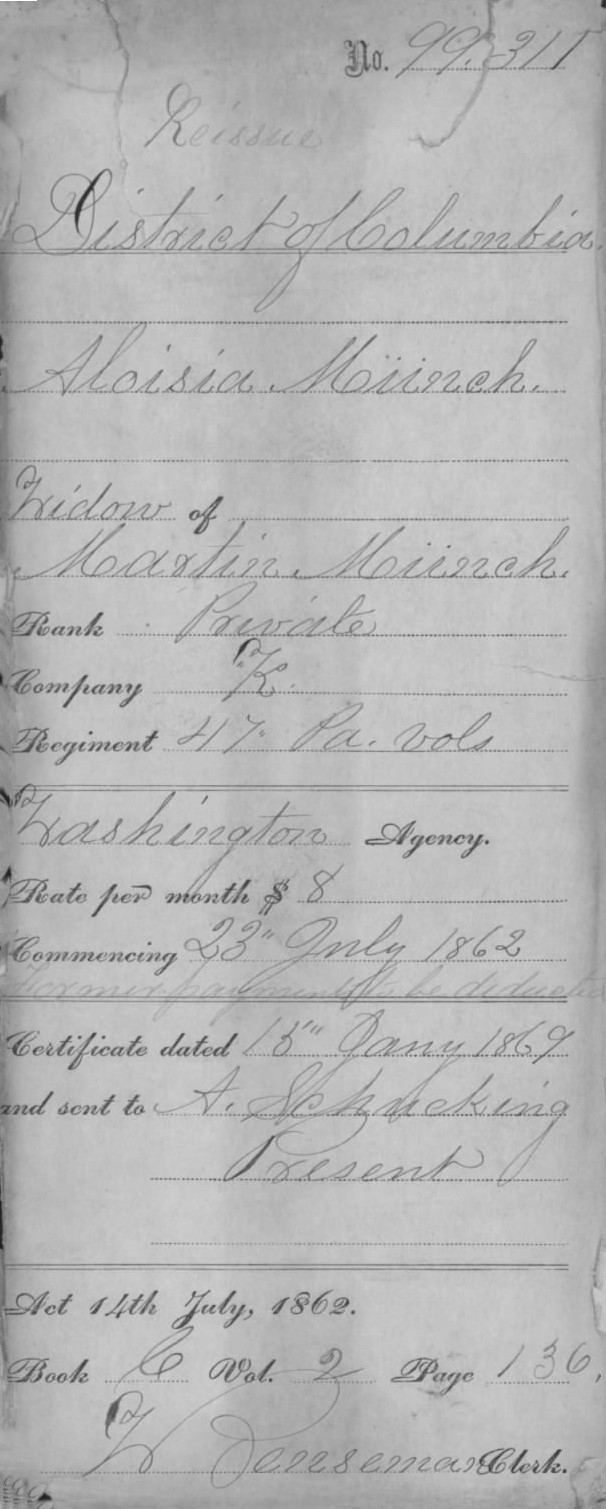 No. 99.311
Reissue
District of Columbia.
Aloisia Münch.
Widow of
Martin Münch.
Rank Private
Company "K"
Regiment 47" Pa. vols
Washington Agency.
Rate per month $ 8
Commencing 23" July 1862
Former payments to be deducted
Certificate dated 15" Jany 1869
and sent to A. Schücking
Present
Act 14th July, 1862.
Book C Vol. 2 Page 136.
Clerk.